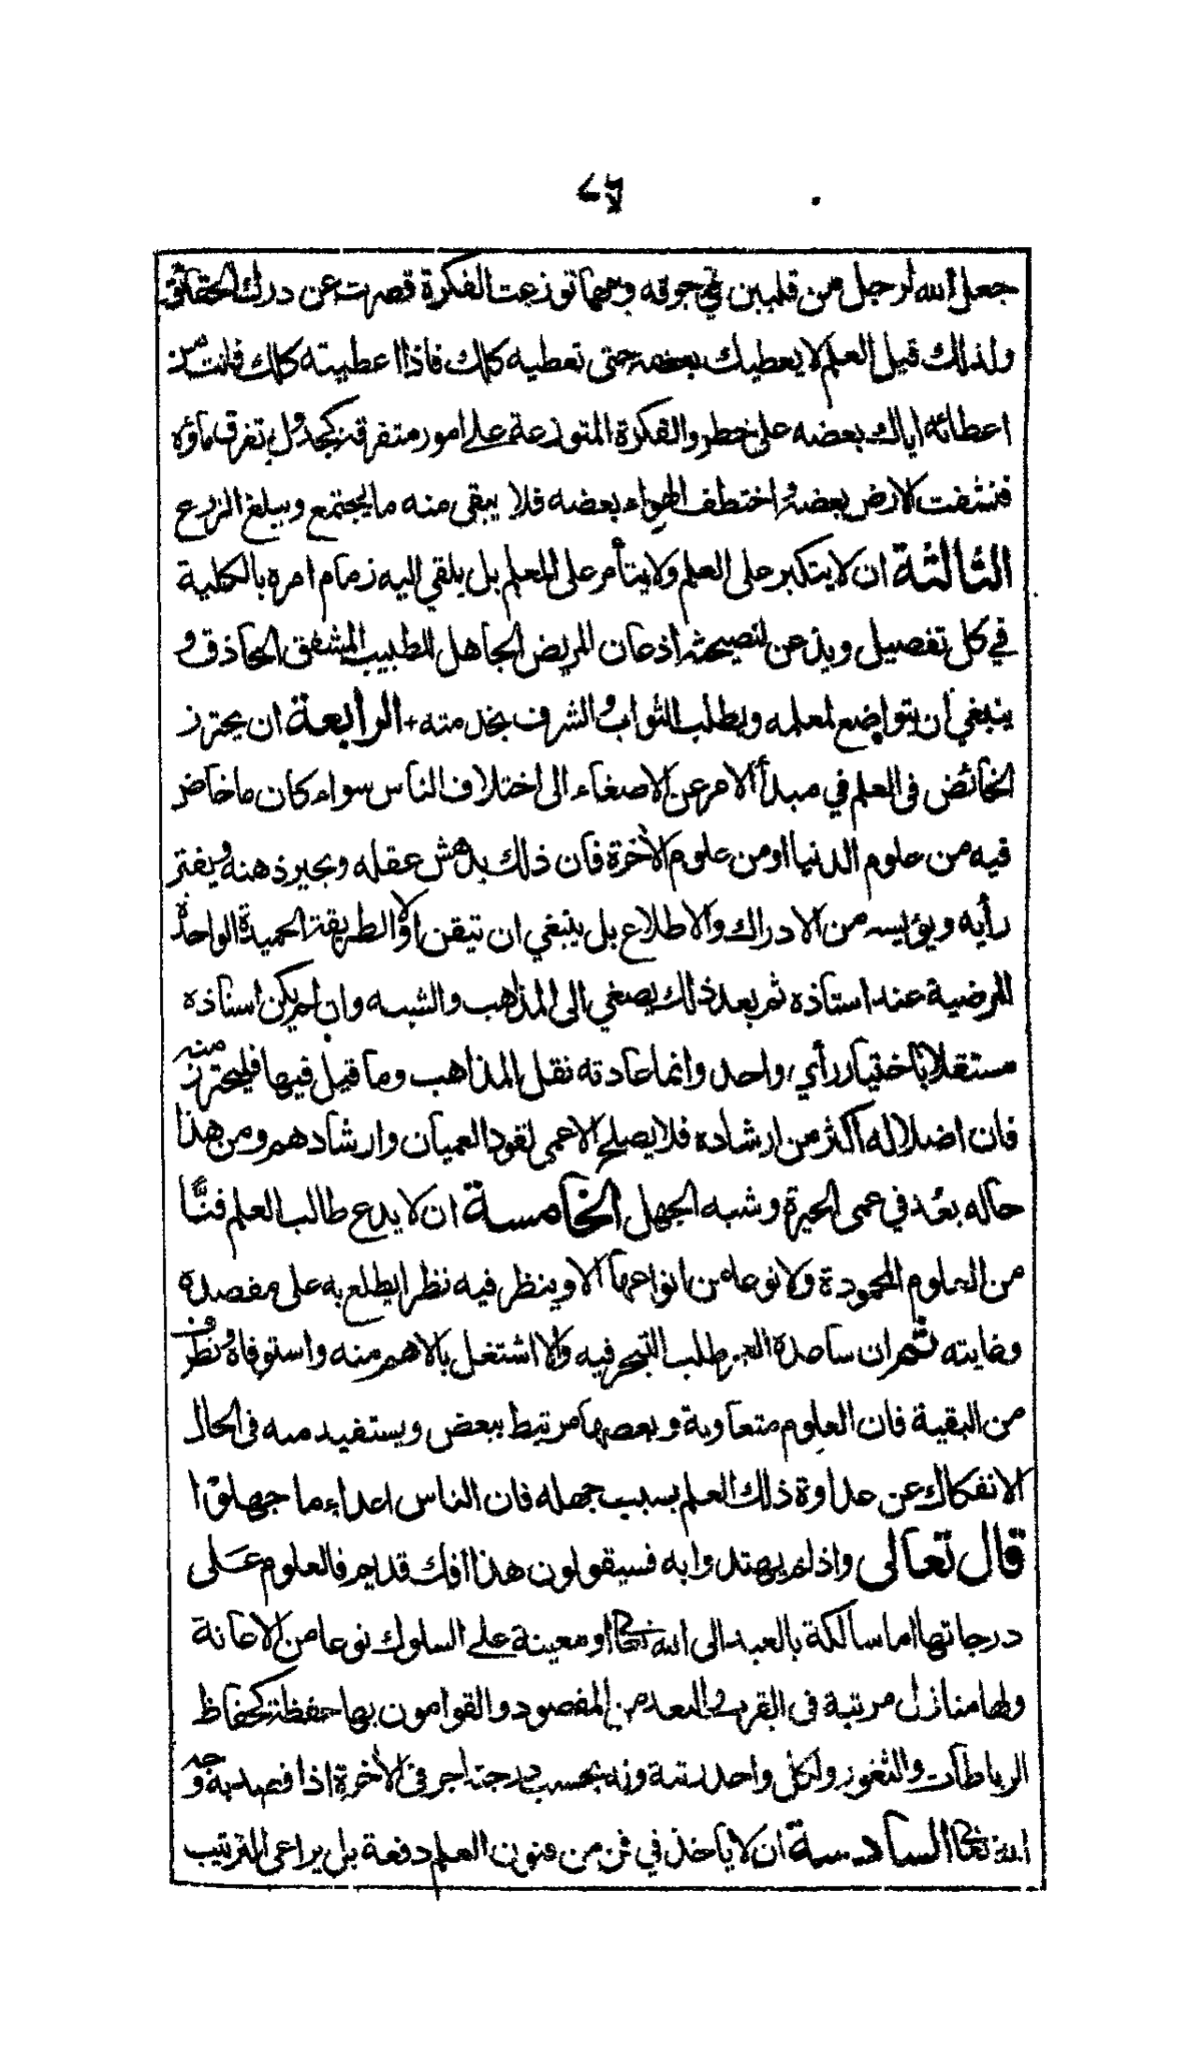 جعل الله لرجل من قلبين في جوفه ومهما توزعت الفكرة قصرت عن درك الحقائق
ولذلك قيل العلم لا يعطيك بعضه حتى تعطيه كلك فاذا اعطيته كلك فانت من
اعطائه اياك بعضه على خطر والفكرة المتوزعة على امور متفرقة كجدول تفرق ماؤه
فنشفت الارض بعضه واختطف الهواء بعضه فلا يبقى منه ما يجتمع ويبلغ المزرع
الثالثة ان لا يتكبر على العلم ولا يتأمر على المعلم بل يلقي اليه زمام امره بالكلية
في كل تفصيل ويذعن لنصيحته اذعان المريض الجاهل للطبيب المشفق الحاذق و
ينبغي أن يتواضع لمعلمه ويطلب الثواب والشرف بخدمته + الرابعة ان يحترز
الخائض في العلم في مبدأ الامر عن الاصغاء الى اختلاف الناس سواء كان ما خاض
فيه من علوم الدنيا او من علوم الأخرة فان ذلك يدهش عقله ويحير ذهنه ويفتر
رأيه ويؤايسه من الادراك والاطلاع بل ينبغي ان تيقن اولا الطريقة الحميدة الواحدة
المرضية عند استاذه ثم بعد ذلك يصغي الى المذاهب والشبه وان لم يكن استاذه
مستقلا باختيار رأي واحد وانما عادته نقل المذاهب وما قيل فيها فليحترز منه
فان اضلاله اكثر من ارشاده فلا يصلح الاعمى لقود العميان وارشادهم ومن هذا
حاله بعُد في عمى الحيرة وشبه الجهل الخامسة ان لا يدع طالب العلم فنًّا
من العلوم المحمودة ولا نوعا من انواعها الا وينظر فيه نظرا يطلع به على مقصده
وغايته ثم ان ساعده العمر طلب التبحر فيه والا اشتغل بالاهم منه واستوفاه وتطرف
من البقية فان العلوم متعاونة وبعضها مرتبط ببعض ويستفيد منه في الحال
الانفكاك عن عداوة ذلك العلم بسبب جهله فان الناس اعداء ما جهلوا
قال تعالى واذ لم يهتدوا به فسيقولون هذا افك قديم فالعلوم على
درجاتها اما سالكة بالعبد الى الله تعالى او معينة على السلوك نوعا من الاعانة
ولها منازل مرتبة في القرب والبعد من المقصود والقوامون بها حفظة كحفاظ
الرباطات والثغور ولكل واحد رتبة وله بحسب درجته اجر في الأخرة اذا قصد به وجه
الله تعالى السادسة ان لا ياخذ في فن من فنون العلم دفعة بل يراعى الترتيب